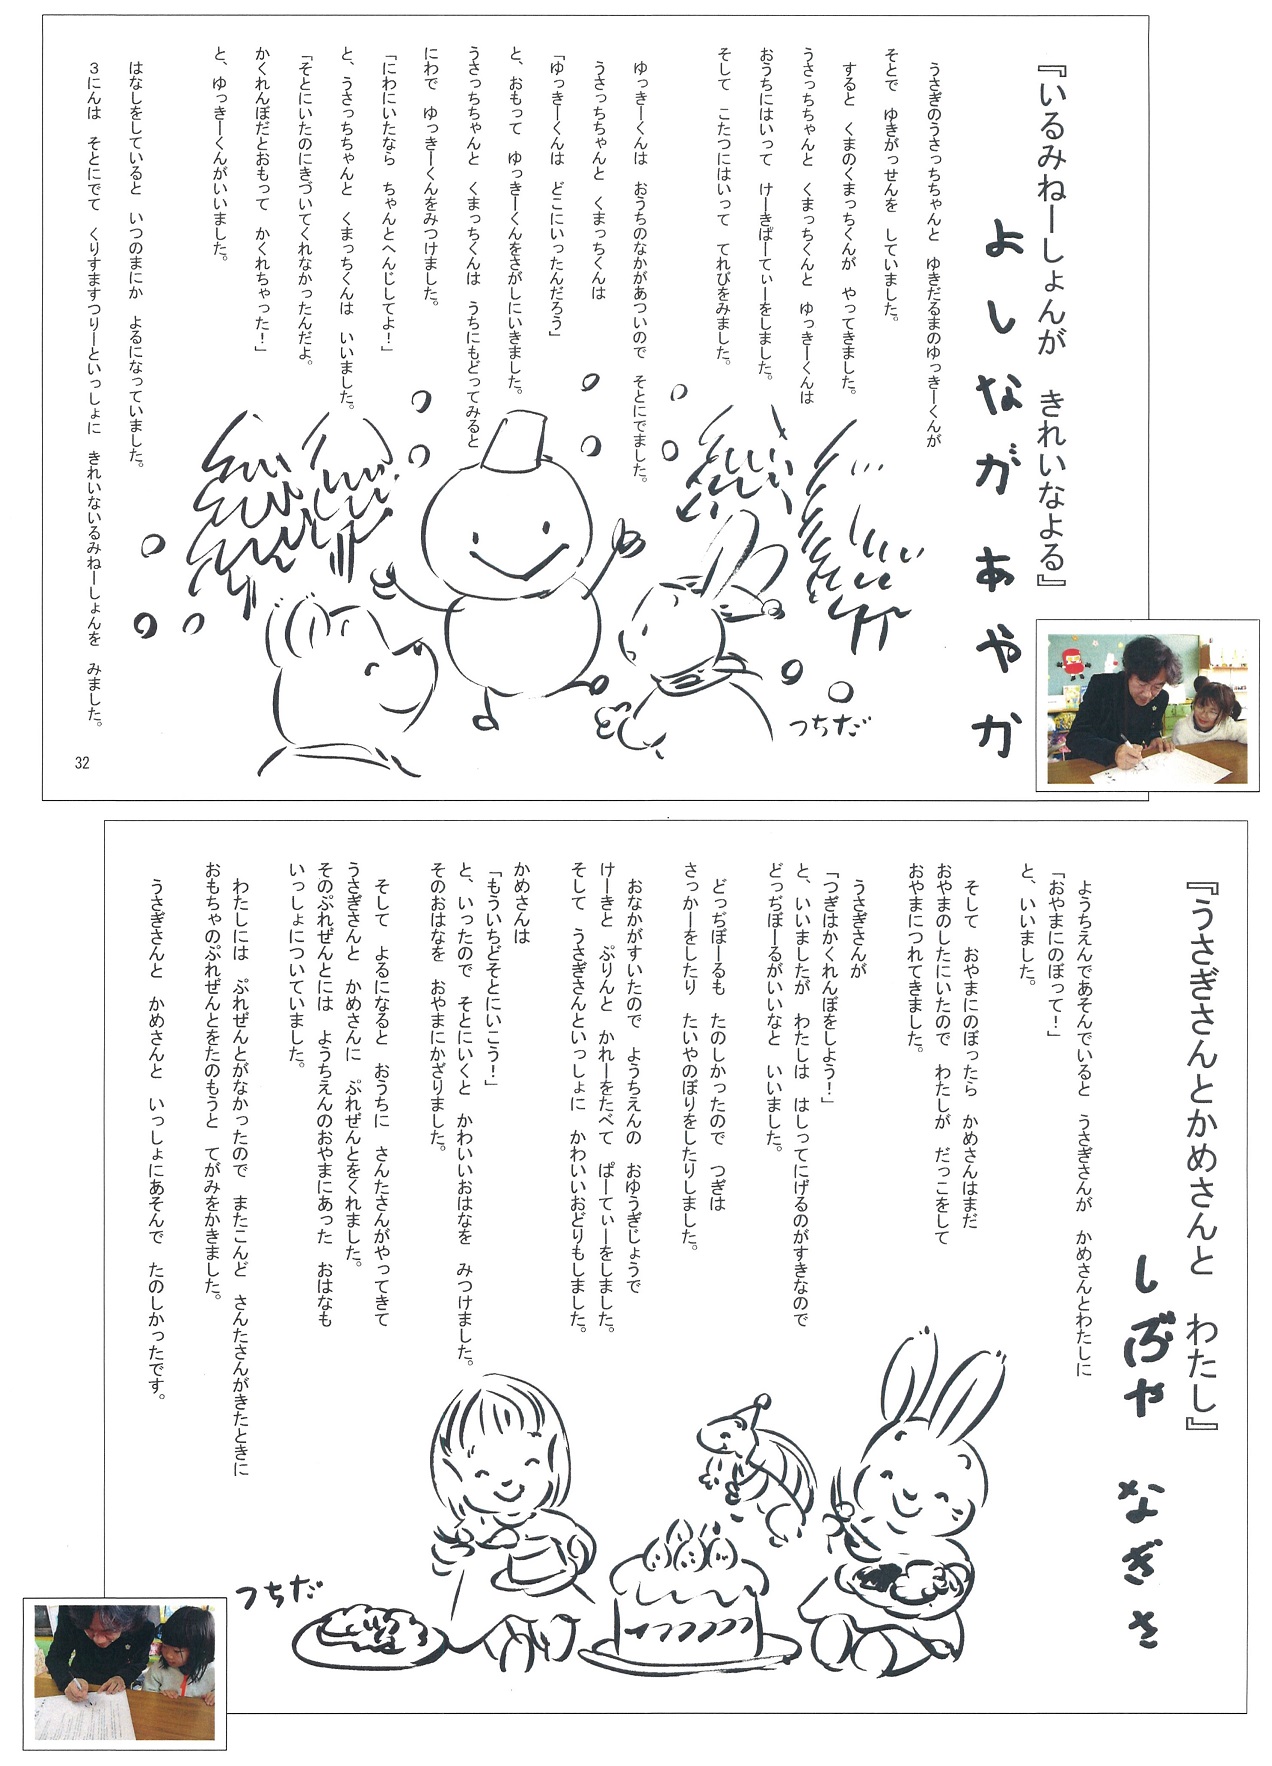 『いるみねーしょんが　きれいなよる』
よしながあやか
うさぎのうさっちちゃんと　ゆきだるまのゆっきーくんが
そとで　ゆきがっせんを　していました。
すると　くまのくまっちくんが　やってきました。
うさっちちゃんと　くまっちくんと　ゆっきーくんは
おうちにはいって　けーきぱーてぃーをしました。
そして　こたつにはいって　てれびをみました。
ゆっきーくんは　おうちのなかがあついので　そとにでました。
うさっちちゃんと　くまっちくんは
「ゆっきーくんは　どこにいったんだろう」
と、おもって　ゆっきーくんをさがしにいきました。
うさっちちゃんと　くまっちくんは　うちにもどってみると
にわで　ゆっきーくんをみつけました。
「にわにいたなら　ちゃんとへんじしてよ！」
と、うさっちちゃんと　くまっちくんは　いいました。
「そとにいたのにきづいてくれなかったんだよ。
かくれんぼだとおもって　かくれちゃった！」
と、ゆっきーくんがいいました。
はなしをしていると　いつのまにか　よるになっていました。
３にんは　そとにでて　くりすますつりーといっしょに　きれいないるみねーしょんを　みました。
つちだ
32
『うさぎさんとかめさんと　わたし』
しぶや　なぎさ
ようちえんであそんでいると　うさぎさんが　かめさんとわたしに
「おやまにのぼって！」
と、いいました。
そして　おやまにのぼったら　かめさんはまだ
おやまのしたにいたので　わたしが　だっこをして
おやまにつれてきました。
うさぎさんが
「つぎはかくれんぼをしよう！」
と、いいましたが　わたしは　はしってにげるのがすきなので
どっぢぼーるがいいなと　いいました。
どっぢぼーるも　たのしかったので　つぎは
さっかーをしたり　たいやのぼりをしたりしました。
おなかがすいたので　ようちえんの　おゆうぎじょうで
けーきと　ぷりんと　かれーをたべて　ぱーてぃーをしました。
そして　うさぎさんといっしょに　かわいいおどりもしました。
かめさんは
「もういちどそとにいこう！」
と、いったので　そとにいくと　かわいいおはなを　みつけました。
そのおはなを　おやまにかざりました。
そして　よるになると　おうちに　さんたさんがやってきて
うさぎさんと　かめさんに　ぷれぜんとをくれました。
そのぷれぜんとには　ようちえんのおやまにあった　おはなも
いっしょについていました。
わたしには　ぷれぜんとがなかったので　またこんど　さんたさんがきたときに
おもちゃのぷれぜんとをたのもうと　てがみをかきました。
うさぎさんと　かめさんと　いっしょにあそんで　たのしかったです。
つちだ